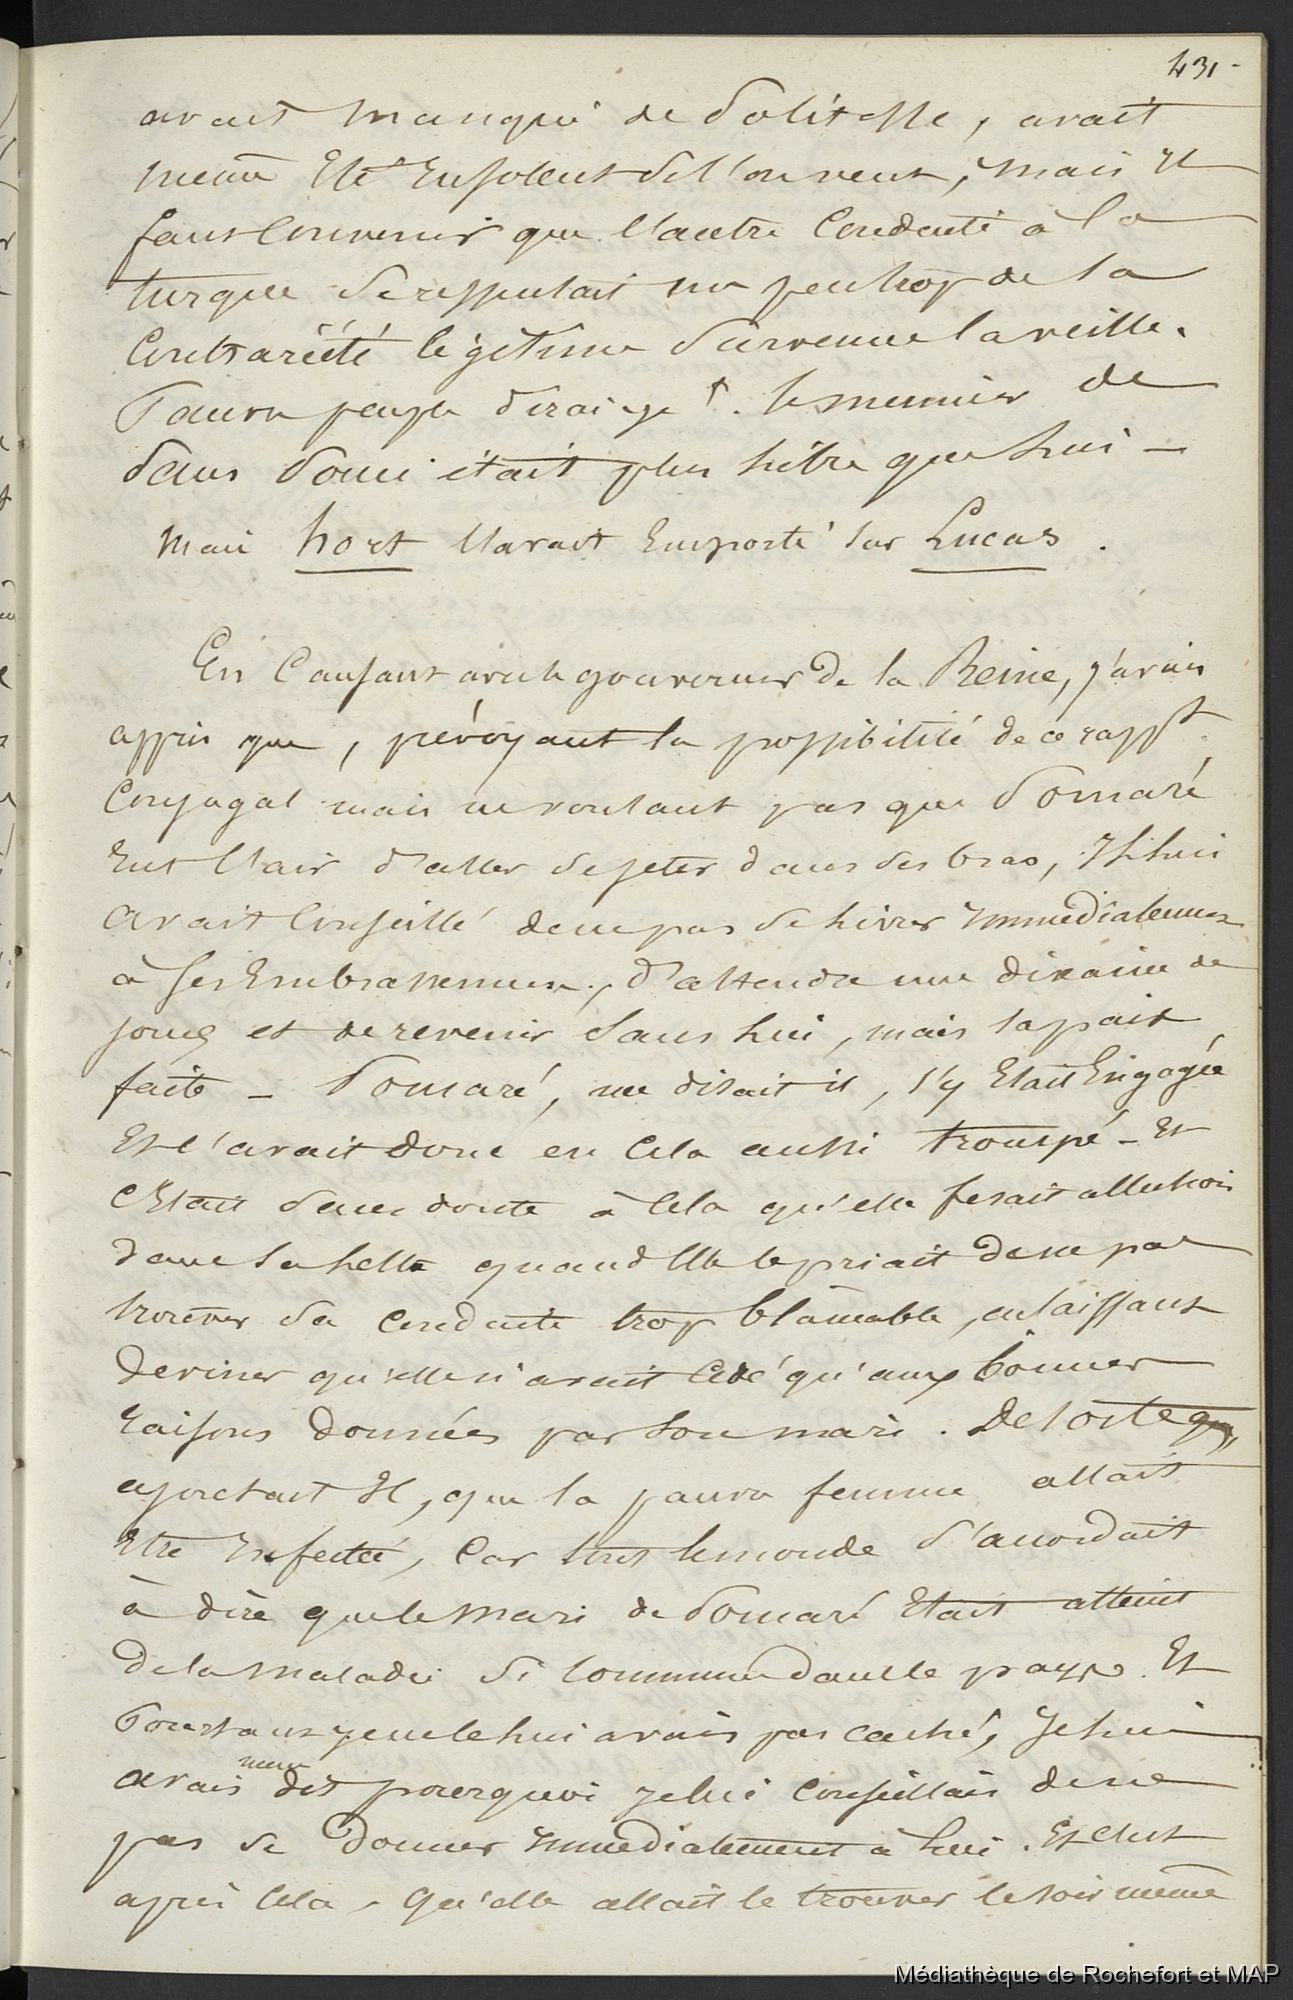 431-
avait manqué de Politesse, avait
meme Eté Insolent si l'on veut, mais Il
faut Convenir que l'autre Conduite à la
turque se ressentait un peu trop de la
Contrariété légitime survenue la veille.
Pauvre peuple le meunier de
sans souci était plus libre que lui —
Mais hort l'avait Emporté sur Lucas.
En Causant avec le gouverneur de la Reine, j'avais
appris que, prévoyant la possibilité de ce rappt
Conjugal mais ne voulant pas que Pomaré
Eut l'air d'aller se jeter dans ses bras, Il lui
avait Conseillé de ne pas se livrer Immédiatement
à ses Embrassemens, d'attendre une dixaine de
jours et de revenir sans lui, mais la paix
faite — Pomaré, me disait il, s'y Etait Engagée
Et l'avait donc en Cela aussi trompé — Et
C'Etait sans doute à Cela qu'elle fesait allusion
dans sa lettre quand Elle le priait de ne pas
trouver sa Conduite trop blâmable, en laissant
deviner qu'elle n'avait Cédé qu'aux bonnes
raisons données par son mari. De sorte
ajoutait Il, que la pauvre femme allait
Etre Infectée, Car tout le monde s'accordait
à dire que le mari de Pomaré Etait atteint
de la maladie si Commune dans le pays. Et
Pourtant je ne le lui avais pas caché, Je lui
avais meme dit pourquoi je lui Conseillais de ne
pas se donner Immédiatement à lui. Et c'est
après Cela, qu'elle allait le trouver le soir même
Médiathèque de Rochefort et MAP